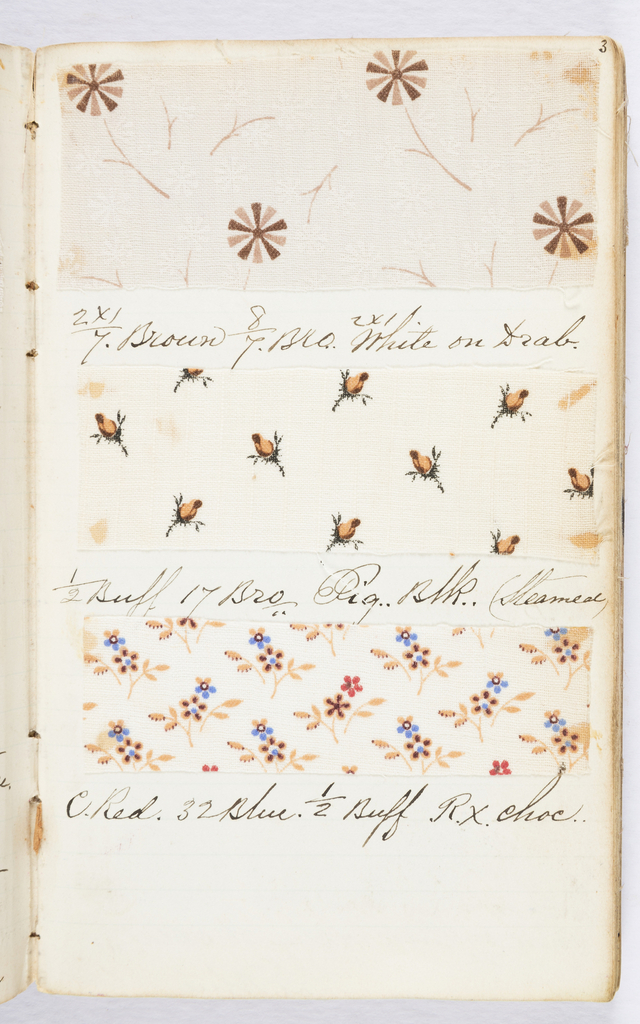 3
2x1/7. Brown 8/7. Bro. 2x1 White on Drab.
1/2 Buff 17 Bro Pig.. Blk.. (Steamed)
C. Red. 32 Blue. 1/2 Buff R.X. choc..